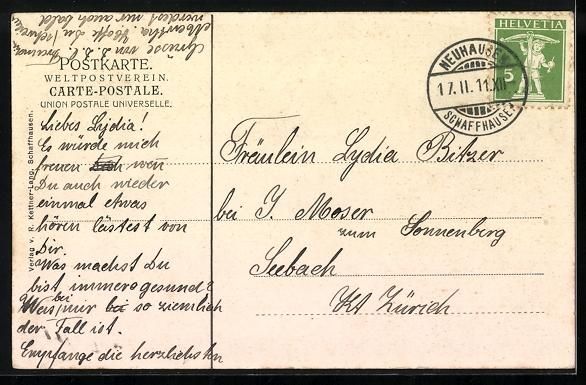 POSTKARTE.
WELTPOSTVEREIN.
CARTE-POSTALE.
UNION POSTALE UNIVERSELLE.
Verlag v. R. Kettner-Lang, Schaffhausen.
HELVETIA
5
NEUHAUSEN
17.II.11.XII
SCHAFFHAUSEN
Liebes Lydia!
Es würde mich
freuen wen
Du auch wieder
einmal etwas
hören lästest von
Dir.
Was machst Du
bist immer gesund?
Weis bei mir so ziemlich
der Fall ist.
Empfange die herzlichsten
Grüsse von D. l.
Martha. Hoffe Du
werdest mir auch bald
Fräulein Lydia Bitzer
bei J. Moser
zum Sonnenberg
Seebach
Kt Zürich